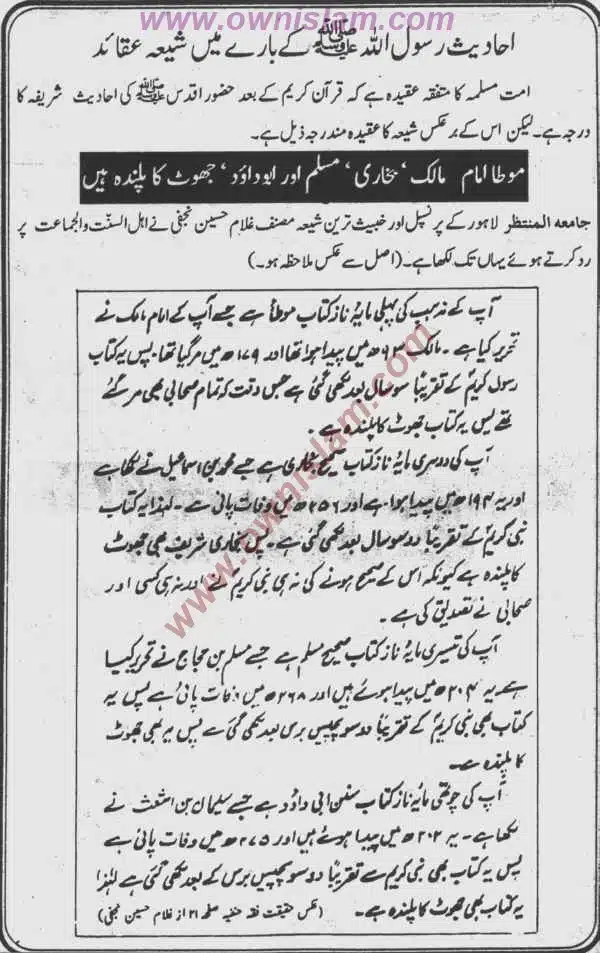 www.ownislam.com
احادیث رسول اللہ ﷺ کے بارے میں شیعہ عقائد
امت مسلمہ کا متفقہ عقیدہ ہے کہ قرآن کریم کے بعد حضور اقدس ﷺ کی احادیث شریفہ کا
درجہ ہے۔ لیکن اس کے برعکس شیعہ کا عقیدہ مندرجہ ذیل ہے۔
موطا امام مالک ‘ بخاری ‘ مسلم اور ابو داؤد ‘ جھوٹ کا پلندہ ہیں
جامعہ المنتظر لاہور کے پرنسپل اور خبیث ترین شیعہ مصنف غلام حسین نجفی نے اہل السنّت والجماعت پر
رد کرتے ہوئے یہاں تک لکھا ہے۔ (اصل سے عکس ملاحظہ ہو۔)
آپ کے مذہب کی پہلی مایۂ ناز کتاب موطأ ہے جسے آپ کے امام مالک نے
تحریر کیا ہے۔ مالک ۹۳ھ میں پیدا ہوا تھا اور ۱۷۹ھ میں مر گیا تھا۔ پس یہ کتاب
رسول کریمؐ کے تقریباً سو سال بعد لکھی گئی ہے جس وقت کہ تمام صحابی بھی مر گئے
تھے پس یہ کتاب جھوٹ کا پلندہ ہے۔
آپ کی دوسری مایۂ ناز کتاب صحیح بخاری ہے جسے محمد بن اسماعیل نے لکھا ہے
اور یہ ۱۹۴ھ میں پیدا ہوا ہے اور ۲۵۶ھ میں وفات پائی ہے۔ لہٰذا یہ کتاب
نبی کریمؐ کے تقریباً دو سو سال بعد لکھی گئی ہے۔ پس بخاری شریف بھی جھوٹ
کا پلندہ ہے کیونکہ اس کے صحیح ہونے کی نہ ہی نبی کریمؐ نے اور نہ ہی کسی اور
صحابی نے تصدیق کی ہے۔
آپ کی تیسری مایۂ ناز کتاب صحیح مسلم ہے جسے مسلم بن حجاج نے تحریر کیا
ہے یہ ۲۰۴ھ میں پیدا ہوئے ہیں اور ۲۶۸ھ میں وفات پائی ہے پس یہ
کتاب بھی نبی کریمؐ کے تقریباً دو سو پچیس برس بعد لکھی گئی ہے پس یہ بھی جھوٹ
کا پلندہ ہے۔
آپ کی چوتھی مایۂ ناز کتاب سنن ابی داؤد ہے جسے سلیمان بن اشعث نے
لکھا ہے۔ یہ ۲۰۲ھ میں پیدا ہوئے ہیں اور ۲۷۵ھ میں وفات پائی ہے
پس یہ کتاب بھی نبی کریم سے تقریباً دو سو پچیس برس کے بعد لکھی گئی ہے لہٰذا
یہ کتاب بھی جھوٹ کا پلندہ ہے۔ (عکس حقیقت فقہ حنفیہ صفحہ ۲۱ از غلام حسین نجفی)
www.ownislam.com